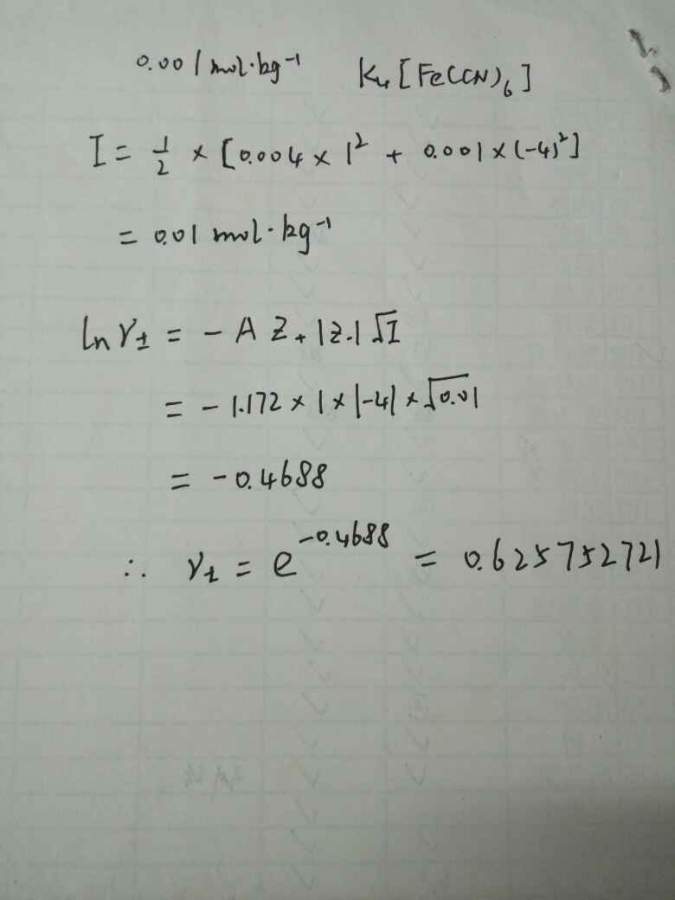 0.001 mol·kg⁻¹ K₄[Fe(CN)₆]
I = 1/2 × [0.004 × 1² + 0.001 × (-4)²]
= 0.01 mol·kg⁻¹
ln γ± = - A Z₊ |Z₋| √I
= - 1.172 × 1 × |-4| × √0.01
= -0.4688
∴ γ± = e^(-0.4688) = 0.625752721